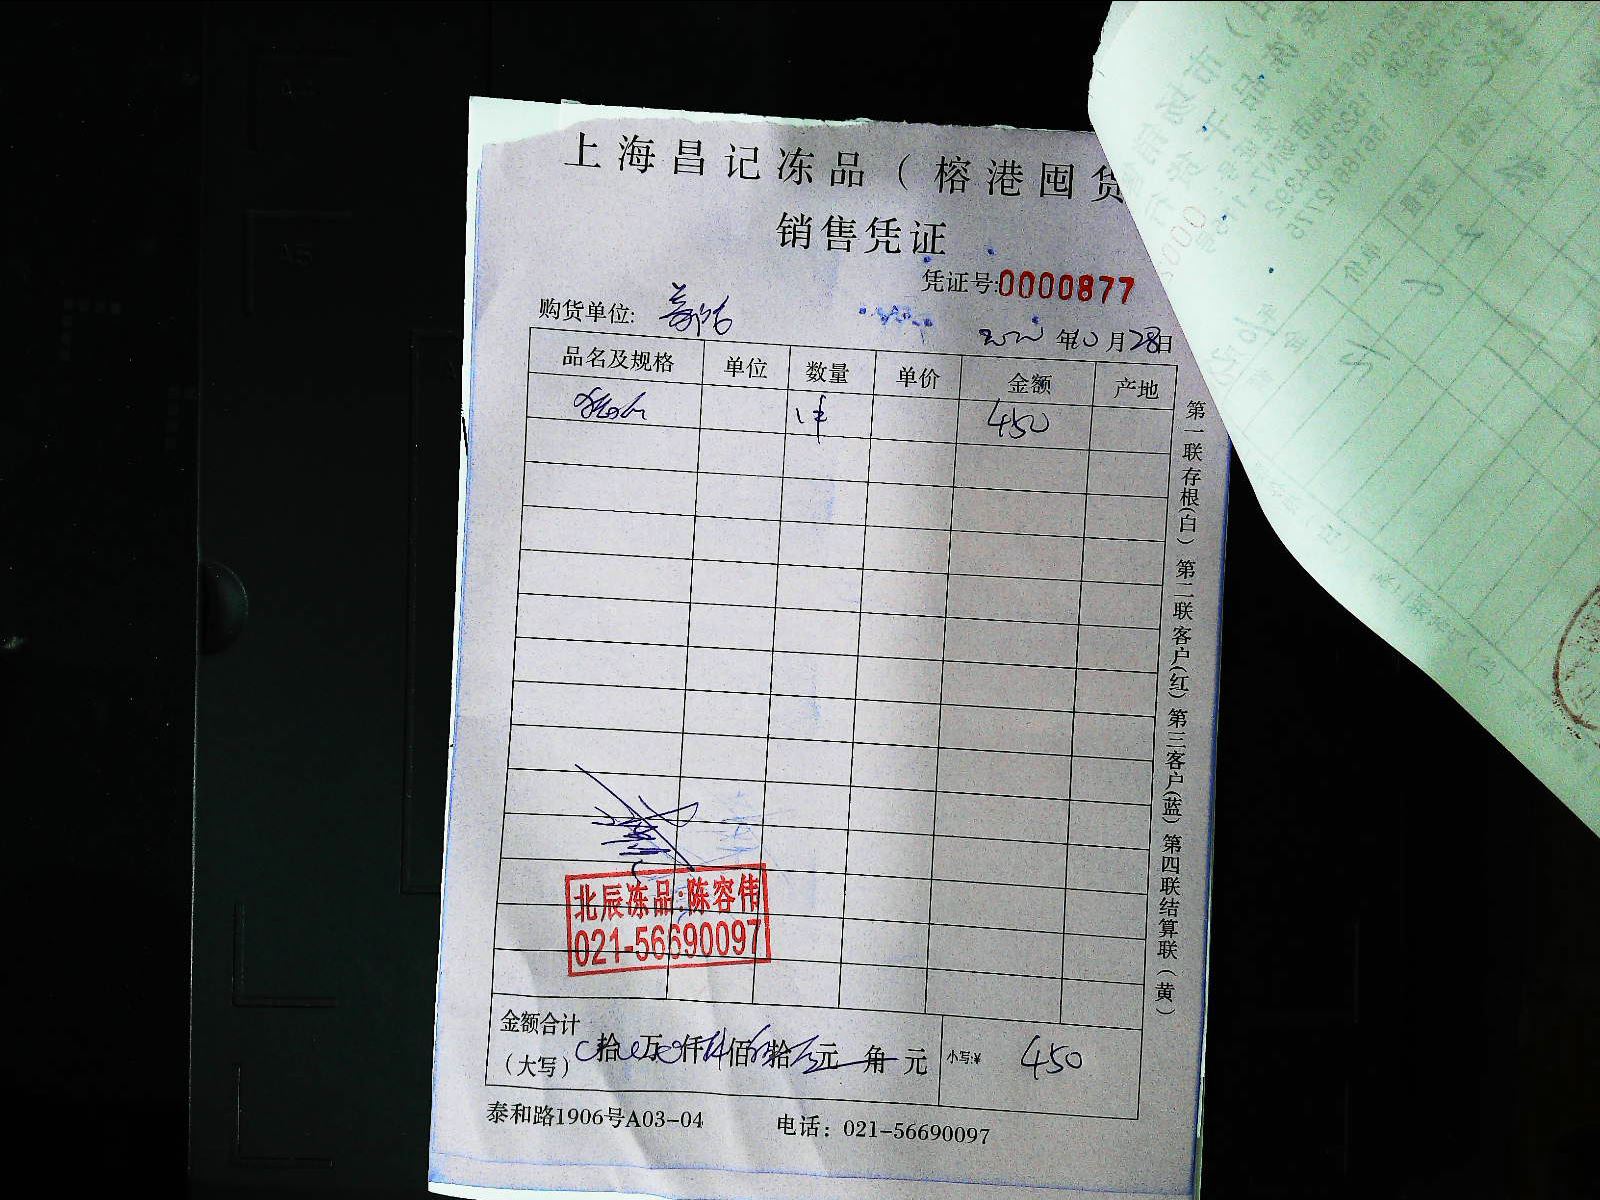 上海昌记冻品（榕港囤货
销售凭证
凭证号:0000877
购货单位:
2022年10月28日
品名及规格 单位 数量 单价 金额 产地
1件 450
第一联存根(白) 第二联客户(红) 第三客户(蓝) 第四联结算联(黄)
北辰冻品:陈容伟
021-56690097
金额合计
(大写) 0拾0万0仟4佰5拾0元 角 元 小写:¥ 450
泰和路1906号A03-04 电话: 021-56690097